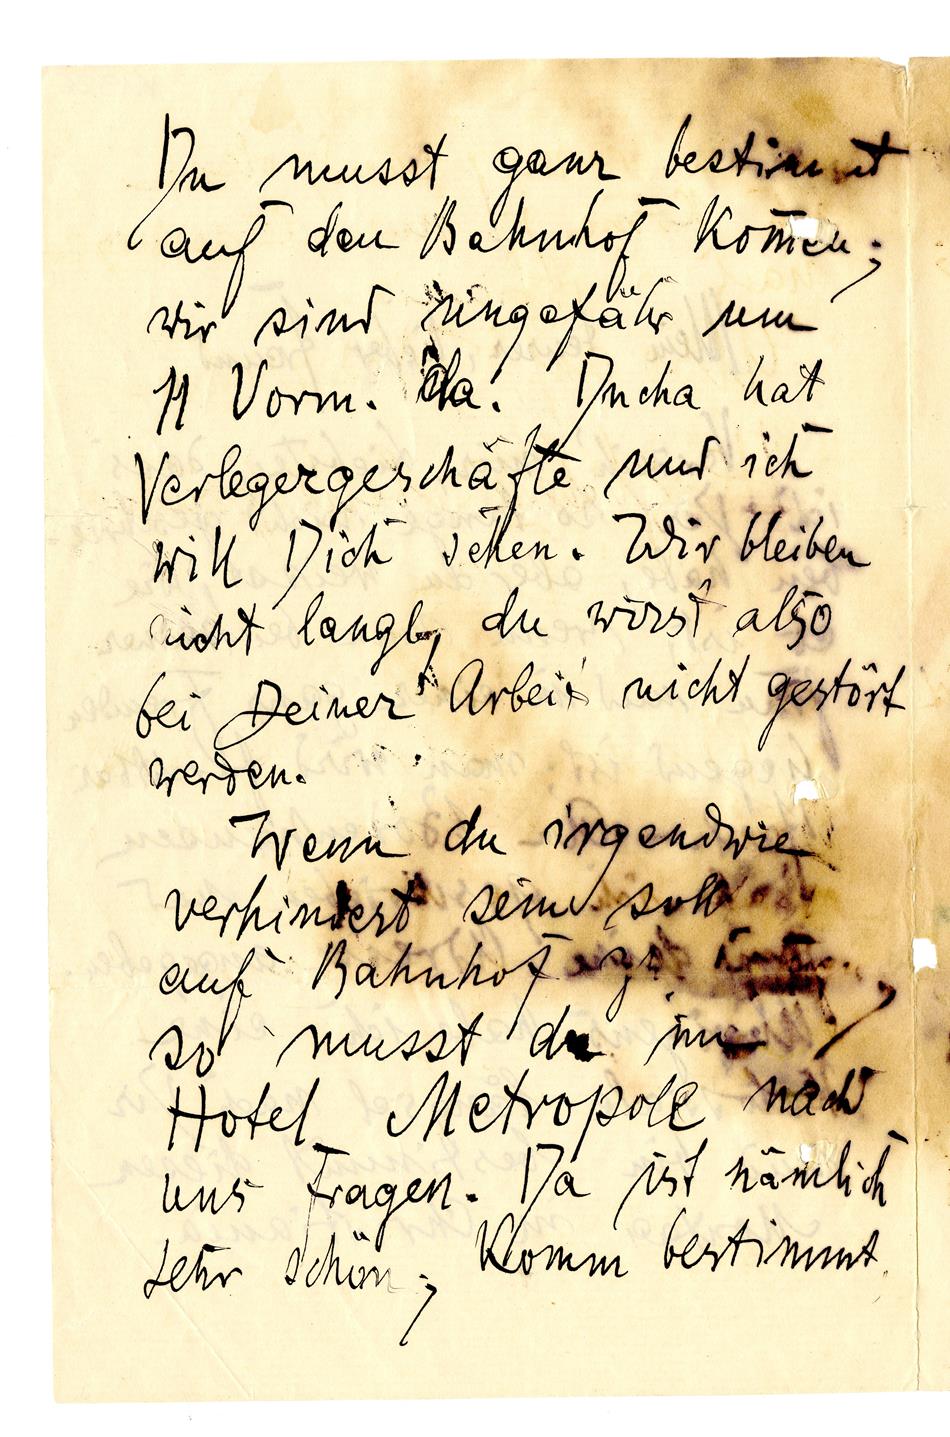 Du musst ganz bestimmt
auf den Bahnhof kom̄en;
wir sind ungefähr um
11 Vorm. da. Ducha hat
Verlegergeschäfte und ich
will Dich sehen. Wir bleiben
nicht lange, du wirst also
bei Deiner Arbeit nicht gestört
werden.
Wenn du irgendwie
verhindert sein soll
auf Bahnhof zu
so musst du im
Hotel Metropole nach
uns fragen. Da ist nämlich
sehr schön; Komm bestimmt.